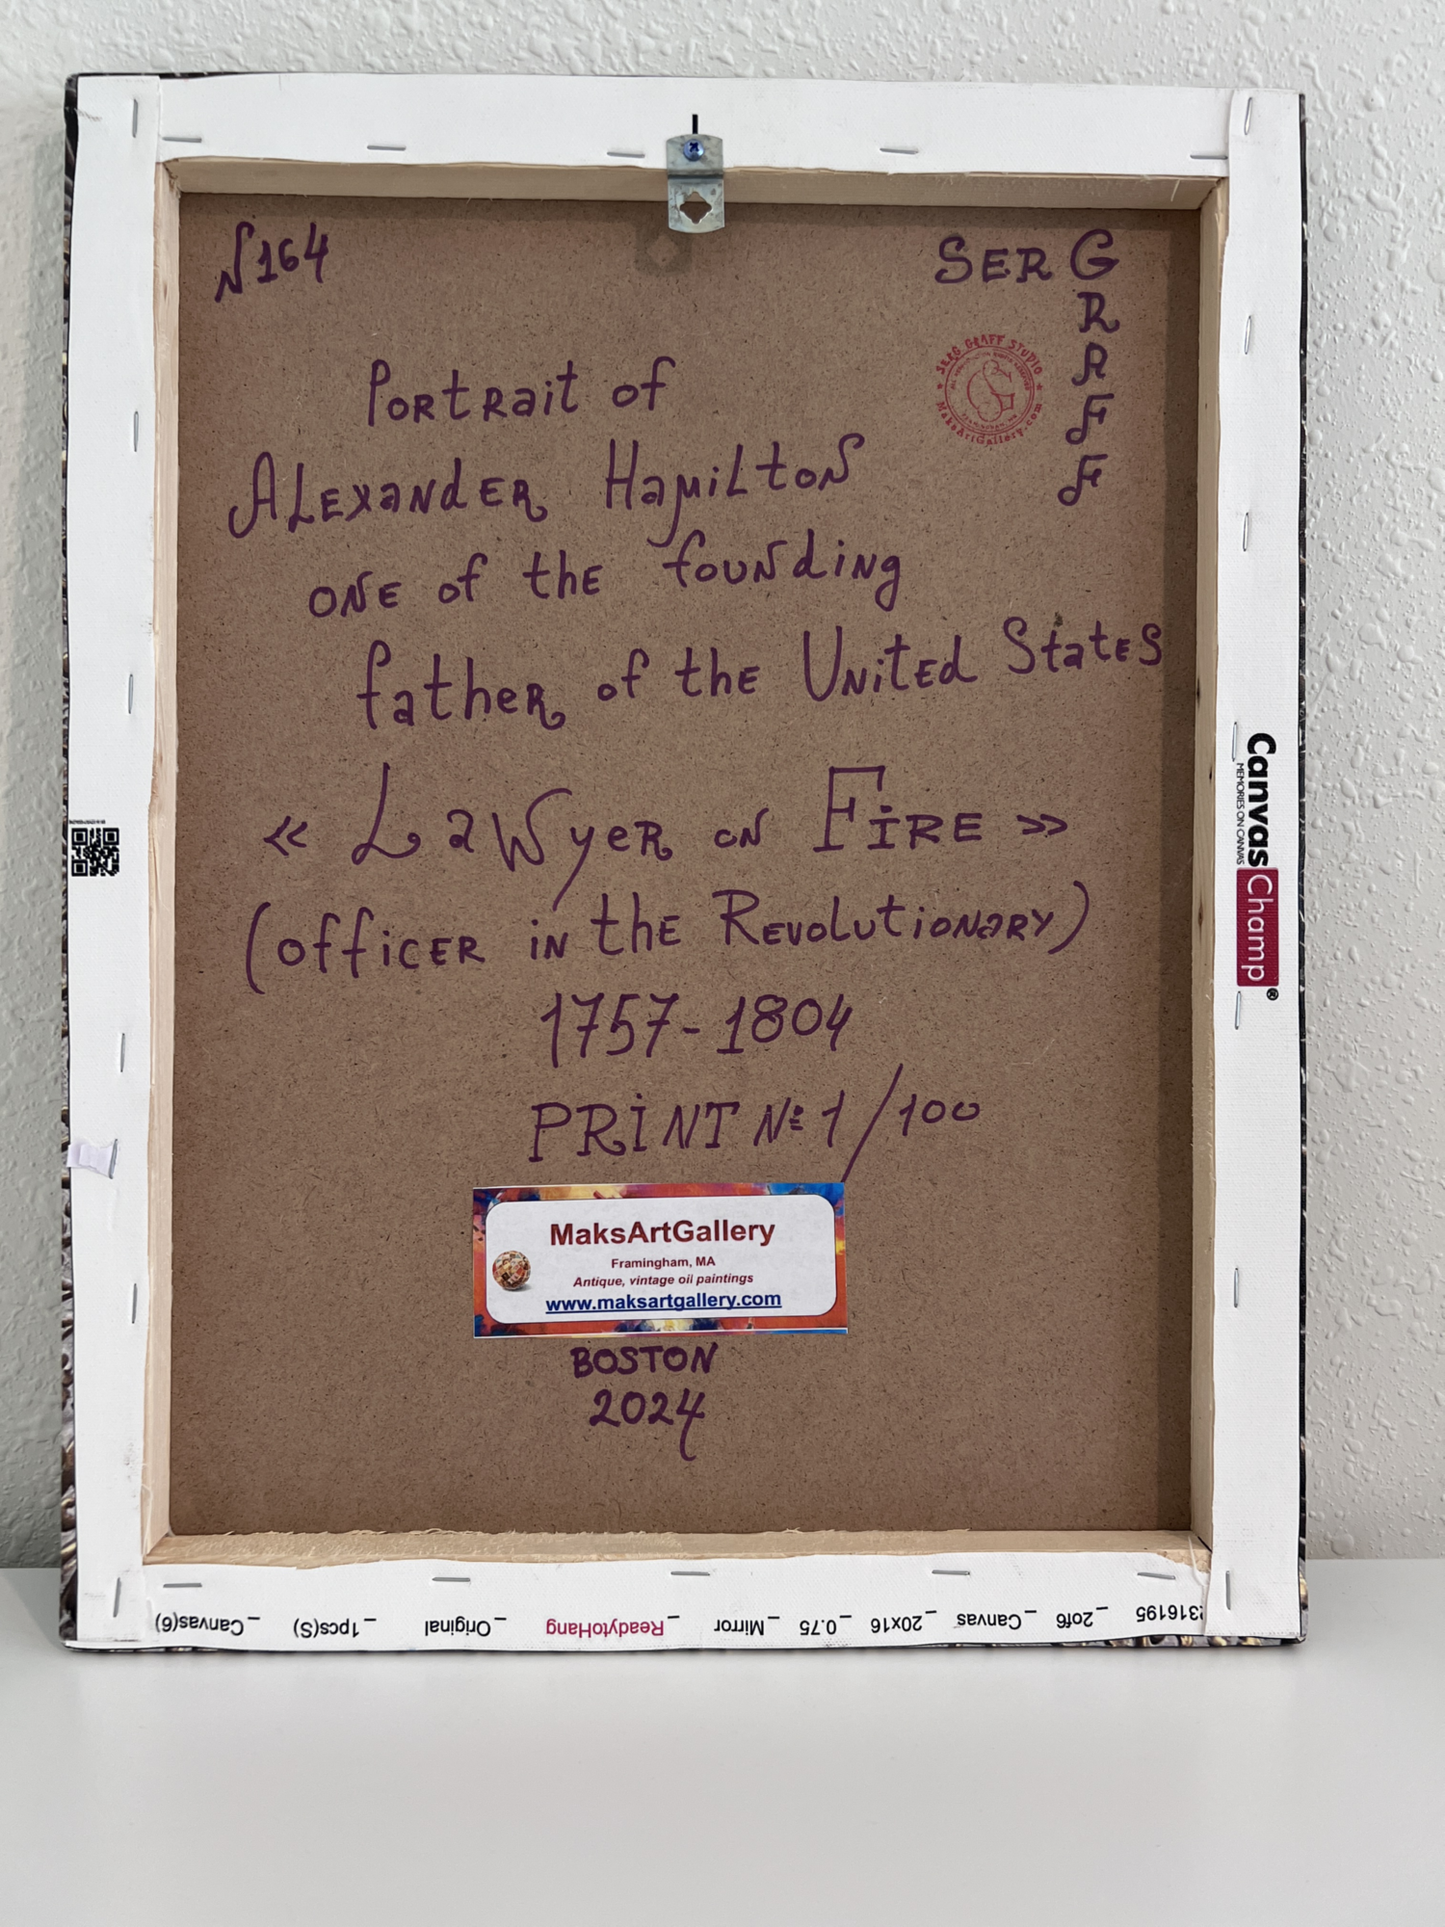 N164
SERG
R
A
F
F
SERG GRAFF STUDIO
MaksArtGallery.com
Portrait of
Alexander Hamilton
one of the founding
father of the United States
« Lawyer on Fire »
(officer in the Revolutionary)
1757-1804
PRINT №1/100
MaksArtGallery
Framingham, MA
Antique, vintage oil paintings
www.maksartgallery.com
BOSTON
2024
CanvasChamp®
MEMORIES ON CANVAS
2316195 _2of6 _Canvas _20x16 _0.75 _Mirror _ReadytoHang _Original _1pcs(S) _Canvas(6)